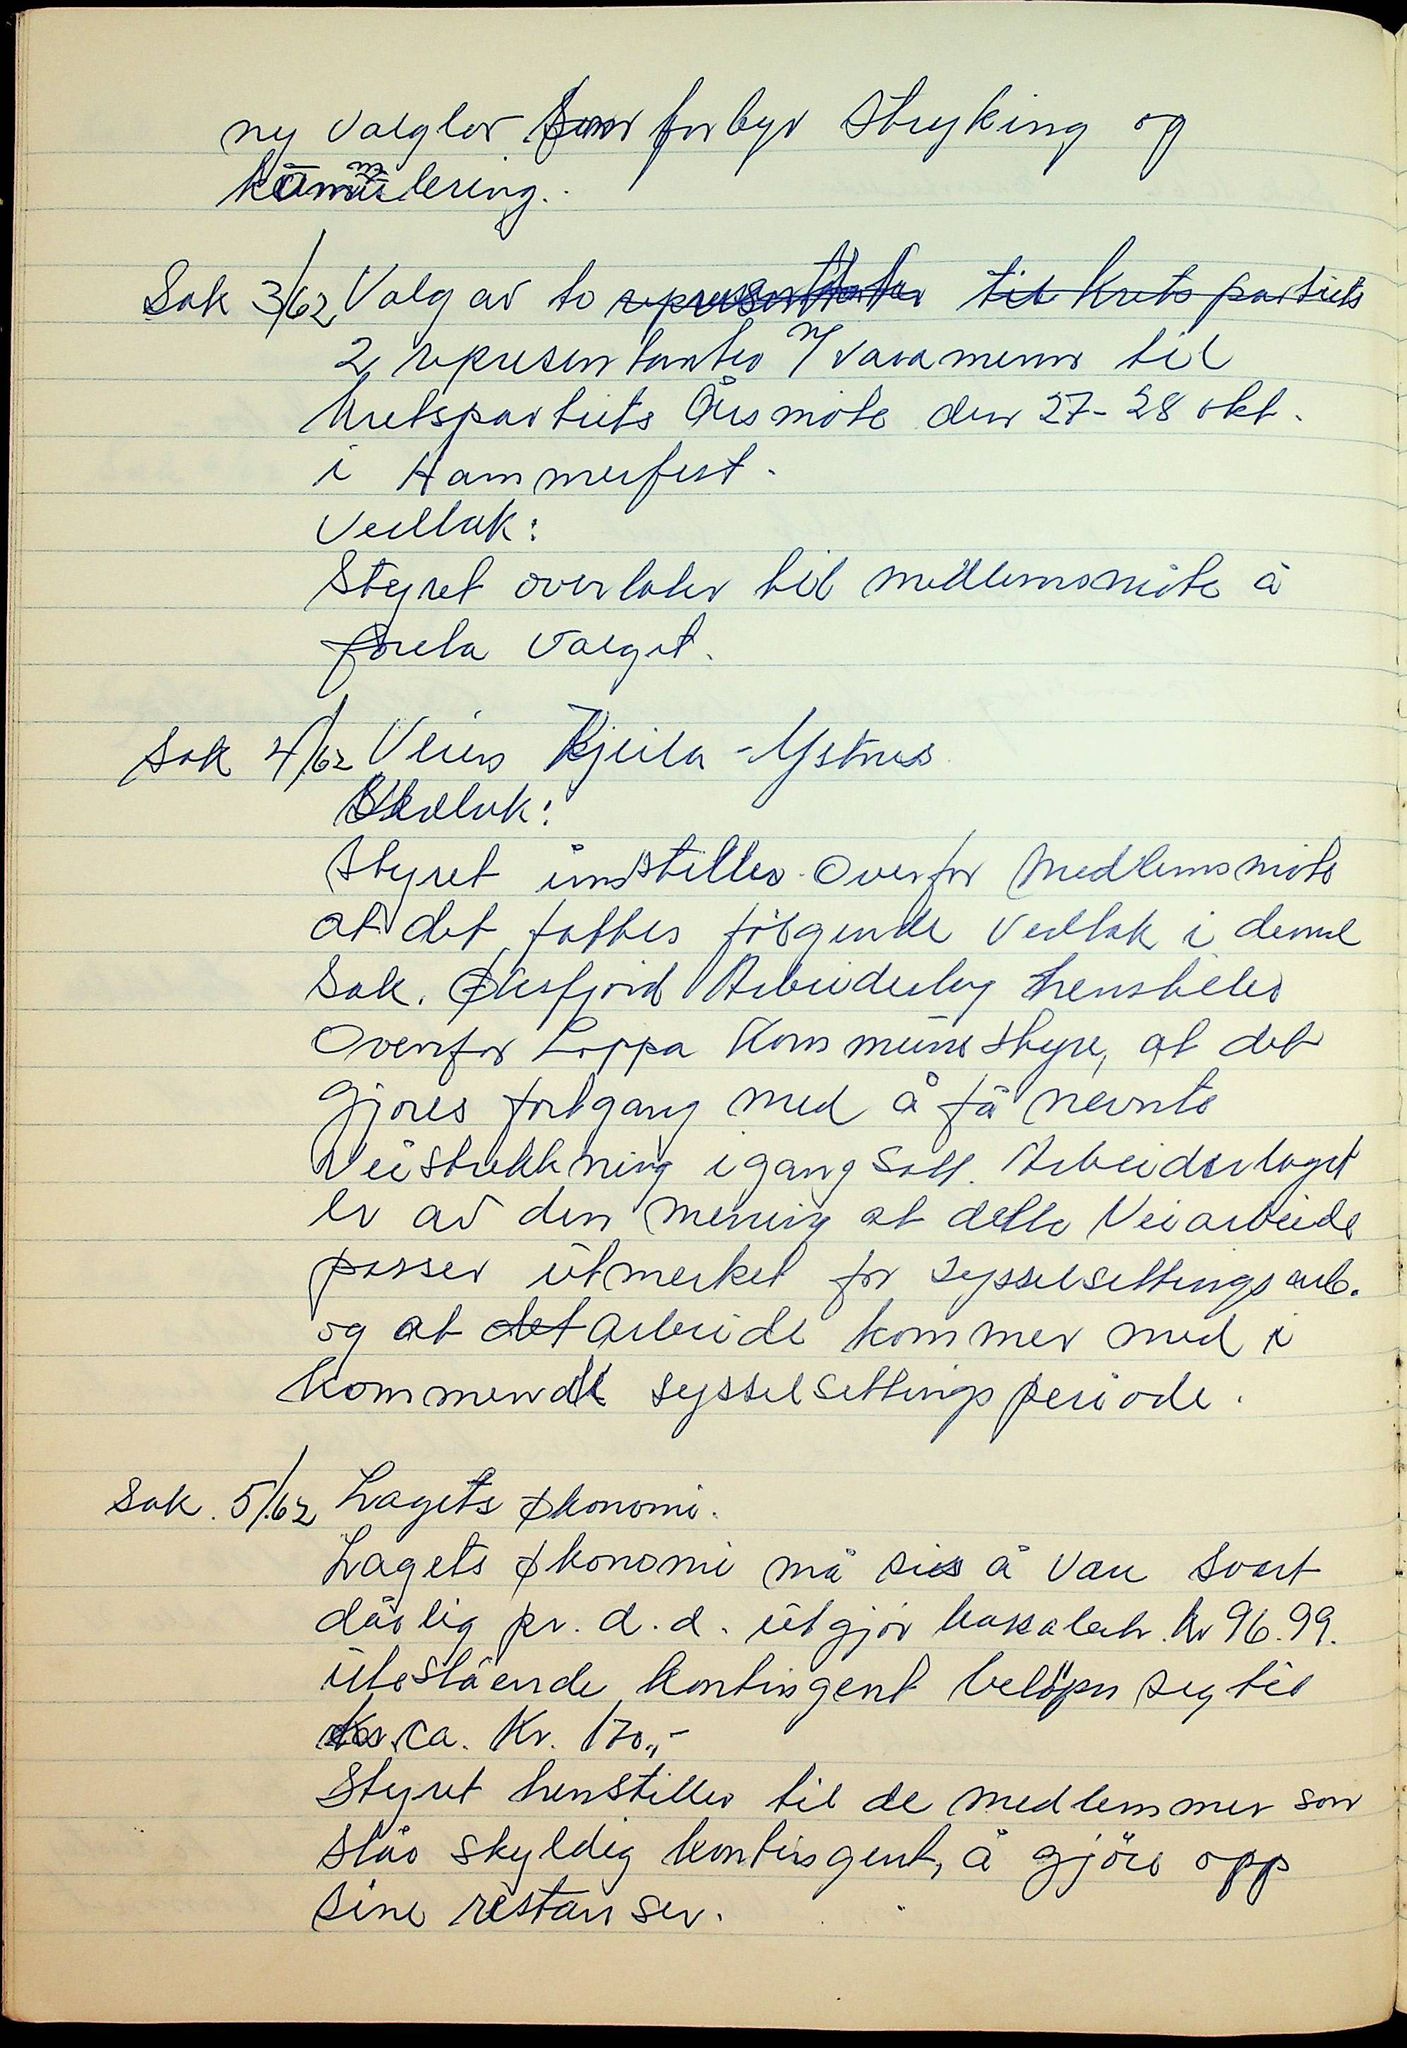 ny valglov som forbyr stryking og
kumulering.
Sak 3/62 Valg av to representanter til Kretspartiets
2 representanter m/varamenn til
Kretspartiets Årsmöte den 27-28 okt.
i Hammerfest.
Vedtak:
Styret overlater til medlemsmöte å
foreta valget.
Sak 4/62 Veien Kjeila - Ystnes
Vedtak:
Styret innstiller overfor Medlemsmöte
at det fattes fölgende Vedtak i denne
Sak. Øksfjord Arbeiderlag henstiller
Overfor Loppa Kommunestyre, at det
gjøres fortgang med å få nevnte
Veistrekkning igangsatt. Arbeiderlaget
er av den mening at dette Veiarbeide
passer utmerket for sysselsettingsarb.
og at det arbeide kommer med i
kommende sysselsettingsperiode.
Sak. 5/62 Lagets økonomi.
Lagets økonomi må sies å være svært
dårlig pr. d.d. utgjör kassabeh. kr 96.99.
utestående kontingent belöper seg til
ca. Kr. 170,-
Styret henstiller til de medlemmer som
står skyldig kontingent, å gjöre opp
sine restanser.